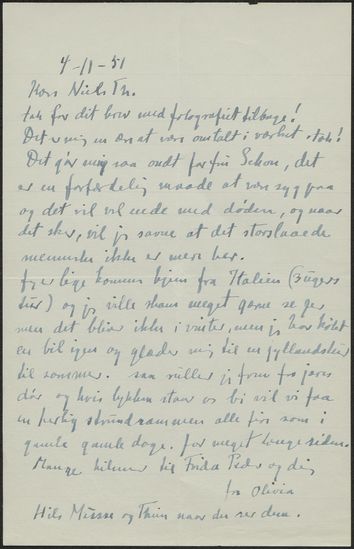 4-11-51
Kære Niels Th.
tak for dit brev med fotografiet tilbage!
Det er mig en ære at være omtalt i værket - tak!
Det gør mig saa ondt for fru Schou, det
er en forfærdelig maade at være syg paa
og det vil vel ende med døden, og naar
det sker, vil jeg savne at det storslaaede
menneske ikke er mere her.
Jeg er lige kommen hjem fra Italien (3 ugers
tur) og jeg ville skam meget gerne se jer
men det bliver ikke i vinter, men jeg har købt
en bil igen og glæder mig til en jyllandstur
til sommer. saa ruller jeg frem for jeres
dør og hvis lykken staar os bi vil vi faa
en herlig strandsammen alle fire som i
gamle gamle dage. for meget længe siden.
Mange hilsner til Frida Peder og dig
fra Olivia
Hils Misse og Thim naar du ser dem.